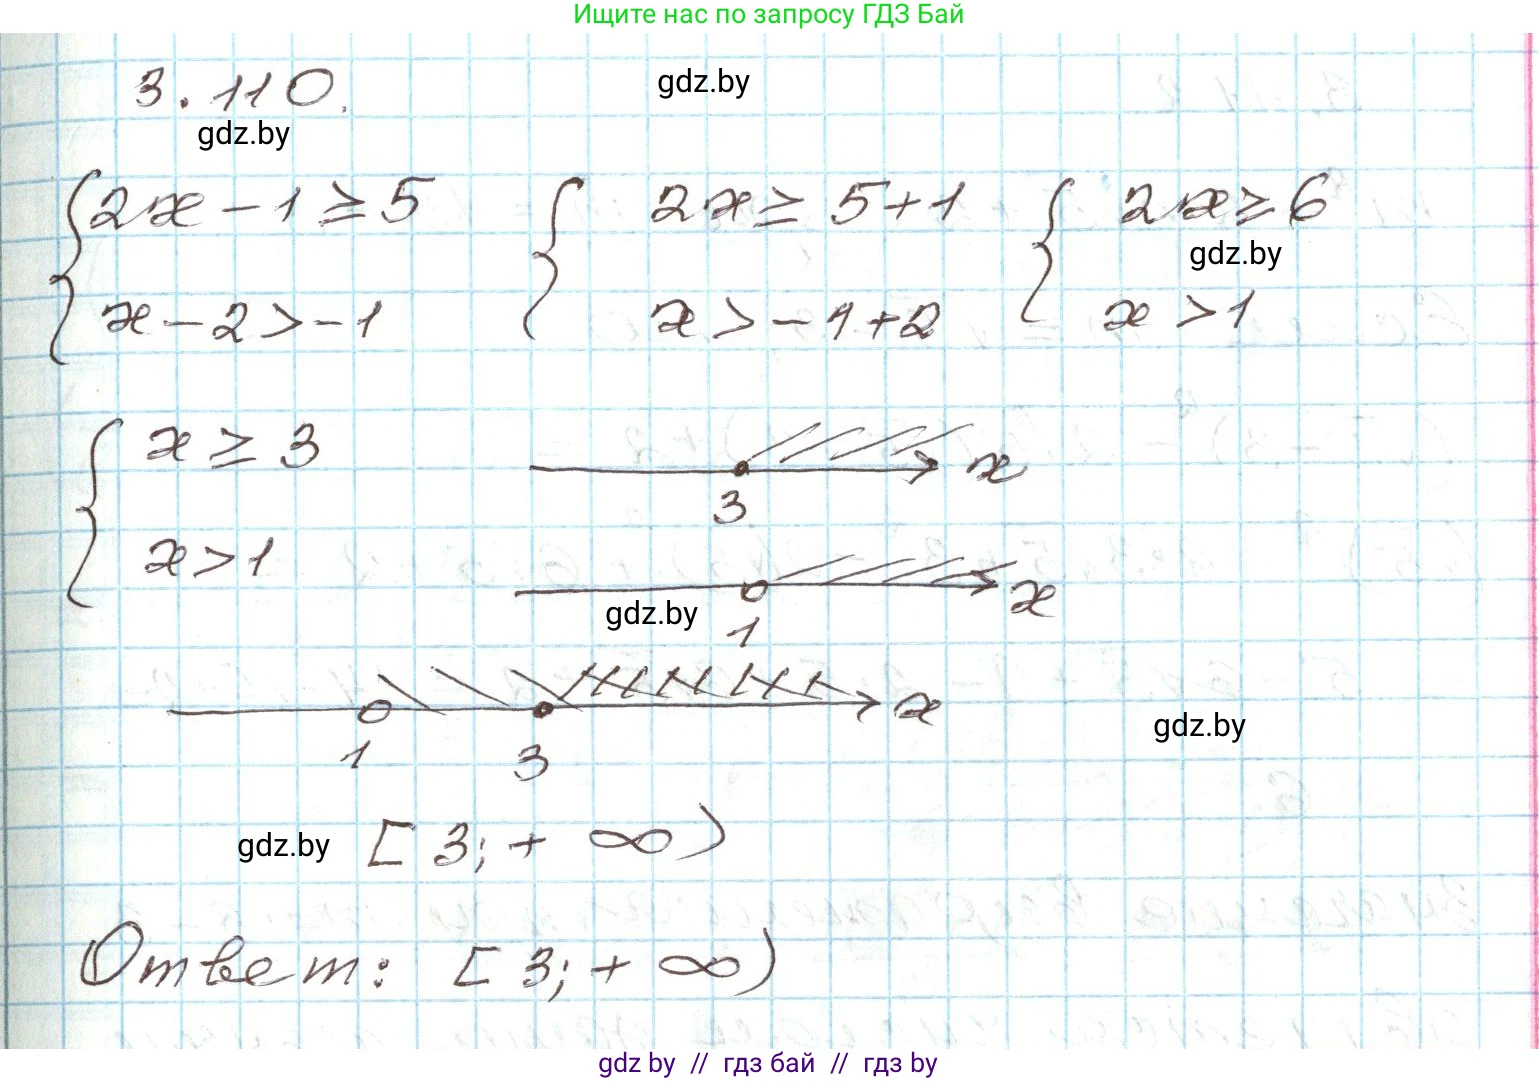 Ищите нас по запросу ГДЗ Бай
3.110.
gdz.by
gdz.by
2x - 1 ≥ 5 2x ≥ 5 + 1 2x ≥ 6
gdz.by
x - 2 > -1 x > -1 + 2 x > 1
x ≥ 3 x
3
x > 1 x
gdz.by
1
x
gdz.by
1 3
gdz.by [3; + ∞)
Ответ: [3; + ∞)
gdz.by // гдз бай // гдз by